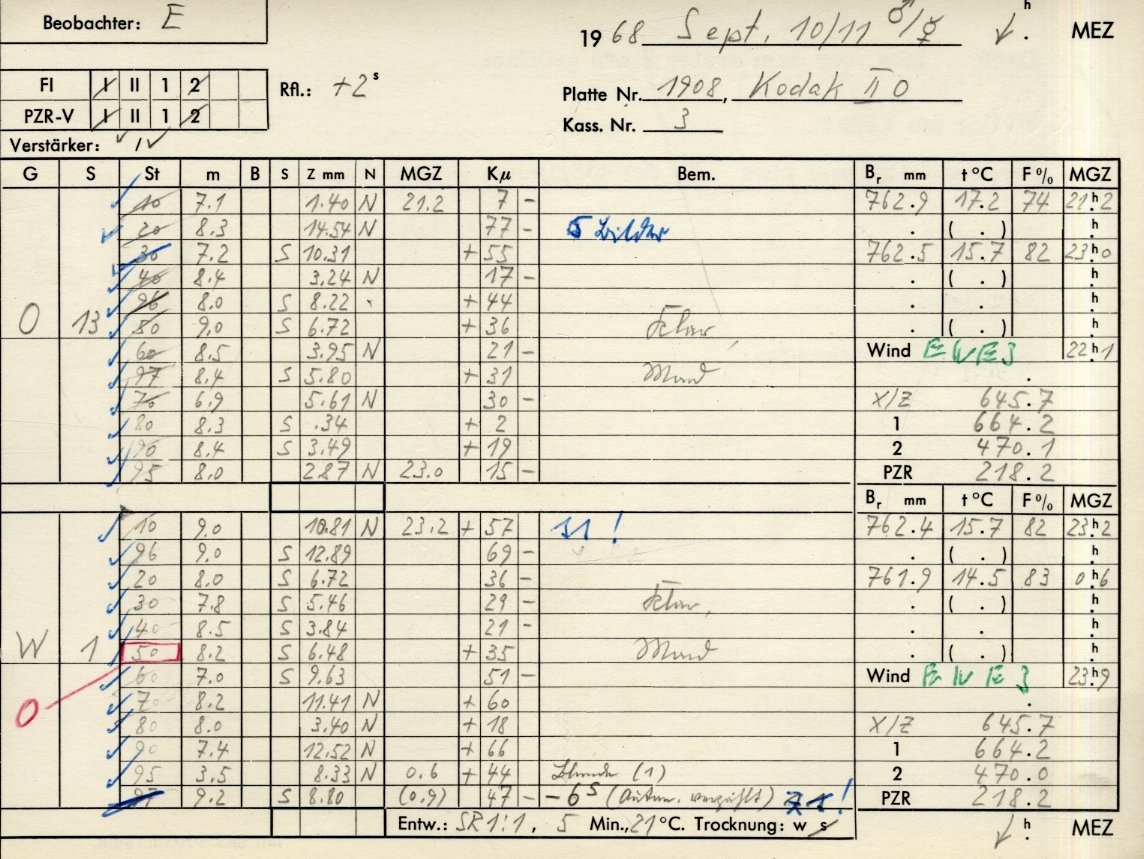 Beobachter: E
1968 Sept. 10/11 ♂/☿ h MEZ
FI I II 1 2 Rfl.: +2 s
Platte Nr. 1908, Kodak II O
PZR-V I II 1 2
Kass. Nr. 3
Verstärker:
G S St m B S Z mm N MGZ Kμ Bem. Br mm t °C F % MGZ
10 7.1 1.40 N 21.2 7 - 762.9 17.2 74 21h2
20 8.3 14.54 N 77 - 5 Bilder . ( . ) h
30 7.2 S 10.31 + 55 762.5 15.7 82 23h0
40 8.4 3.24 N 17 - . ( . ) h
96 8.0 S 8.22 + 44 . . h
O 13 50 9.0 S 6.72 + 36 . ( . ) h
60 8.5 3.95 N 21 - Wind E 22h1
97 8.4 S 5.80 + 31 Mond .
70 6.9 5.61 N 30 - X/Z 645.7
80 8.3 S .34 + 2 1 664.2
90 8.4 S 3.49 + 19 2 470.1
95 8.0 2.87 N 23.0 15 - PZR 218.2
Br mm t °C F % MGZ
10 9.0 10.81 N 23.2 + 57 762.4 15.7 82 23h2
96 9.0 S 12.89 69 - . ( . ) h
20 8.0 S 6.72 36 - 761.9 14.5 83 0h6
30 7.8 S 5.46 29 - . ( . ) h
40 8.5 S 3.84 21 - . . h
W 1 50 8.2 S 6.48 + 35 Mond . ( . ) h
60 7.0 S 9.63 51 - Wind E 23h9
O 70 8.2 11.41 N + 60 .
80 8.0 3.40 N + 18 X/Z 645.7
90 7.4 12.52 N + 66 1 664.2
95 3.5 8.33 N 0.6 + 44 (1) 2 470.0
97 9.2 S 8.80 (0.9) 47 - - 6 s PZR 218.2
Entw.: SR 1:1, 5 Min., 21 °C. Trocknung: w s h MEZ